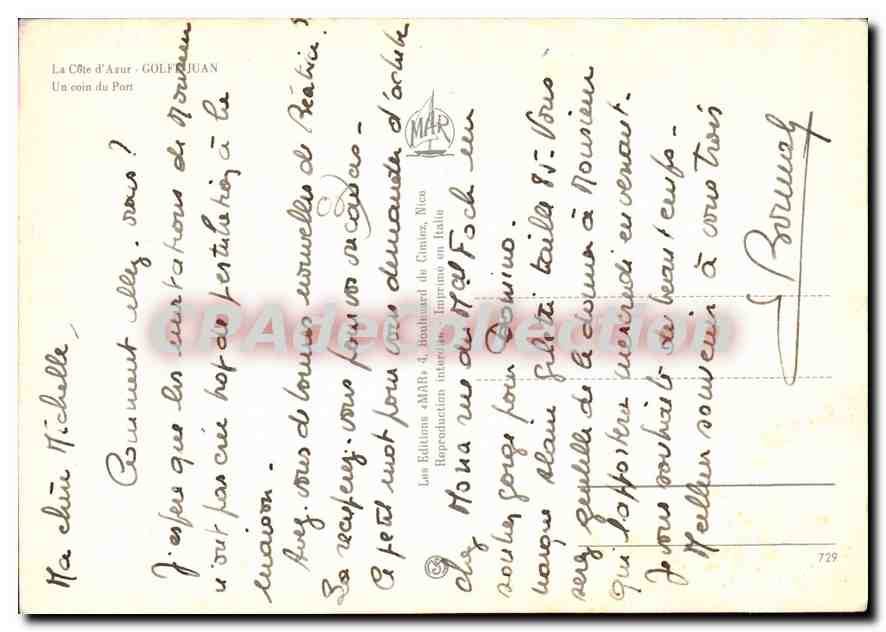 La Côte d'Azur - GOLFE-JUAN
Un coin du Port
MAR
Les Editions «MAR» 4, Boulevard de Cimiez, Nice
Reproduction interdite Imprimé en Italie
729
CPAdeCollection
Ma chère Michelle,
Comment allez-vous ?
J'espère que les de Monsieur
n'ont pas créé trop de perturbation à la
maison.
Avez-vous de bonnes nouvelles de Béatrice ?
La récupérez-vous pour vos vacances -
Ce petit mot pour vous demander d'acheter
chez Mona rue du Mal Foch un
soutien gorge pour Domino.
marque taille 85 - Vous
serez gentille de le donner à Monsieur
qui l'apportera mercredi en venant.
Je vous souhaite de beau temps -
Meilleur souvenir à vous trois